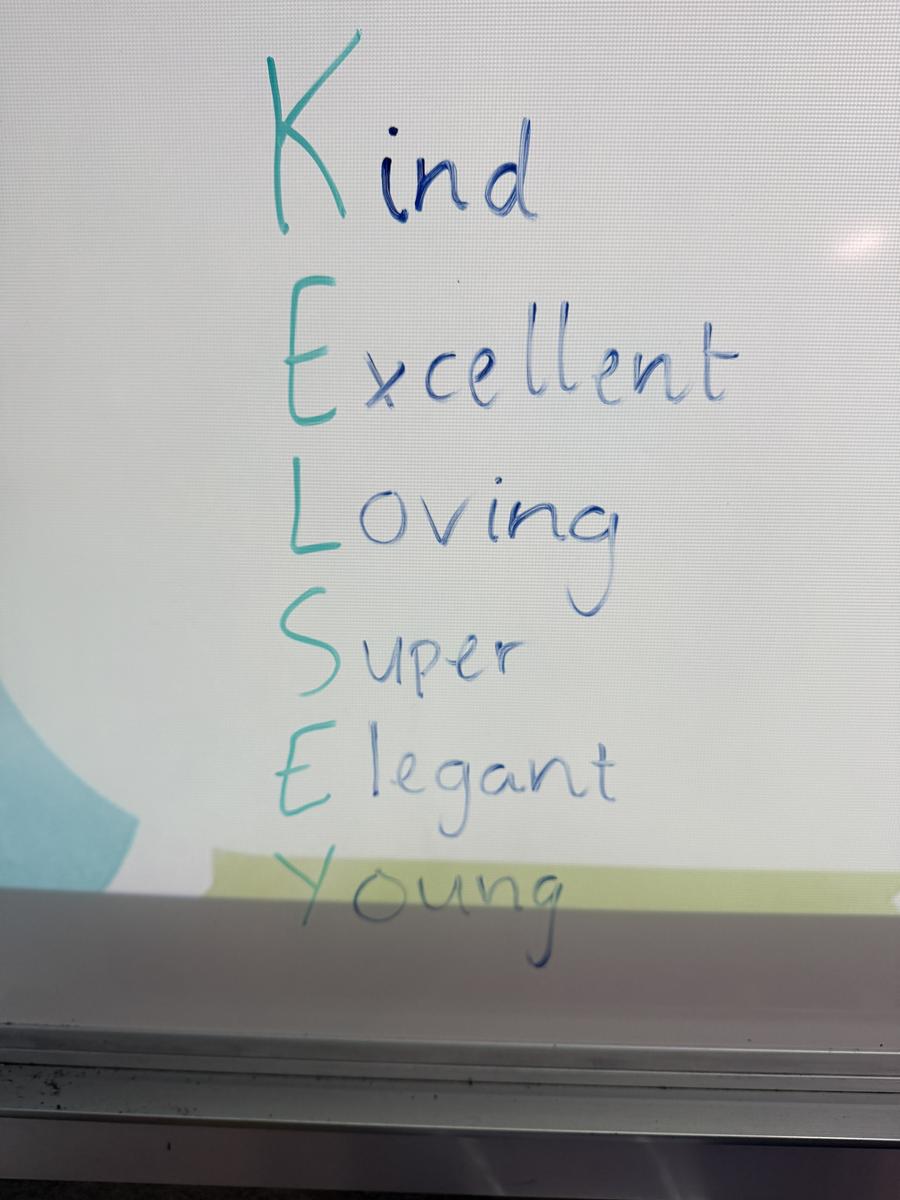 Kind
Excellent
Loving
Super
Elegant
Young